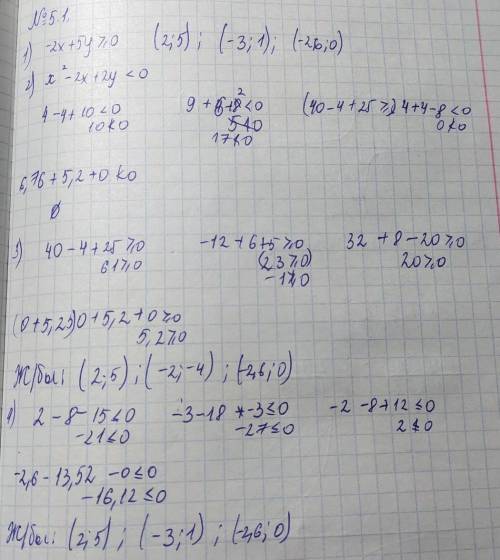 №51.
1) -2x+5y≥0 (2;5) ; (-3;1); (-2,6;0)
2) x²-2x+2y<0
4-4+10<0 9+6+2<0 (40-4+25≥) 4+4-8<0
10≮0 5<0 0≮0
17≮0
6,76+5,2+0≮0
∅
3) 40-4+25≥0 -12+6+5≥0 32+8-20≥0
61≥0 (23≥0) 20≥0
-1≱0
(0+5,25)0+5,2+0≥0
5,2≥0
Ж/бы: (2;5) ; (-2;-4) ; (-2,6;0)
4) 2-8-15≤0 -3-18*-3≤0 -2-8+12≤0
-21≤0 -27≤0 2≰0
-2,6-13,52-0≤0
-16,12≤0
Ж/бы: (2;5) ; (-3;1) ; (-2,6;0)